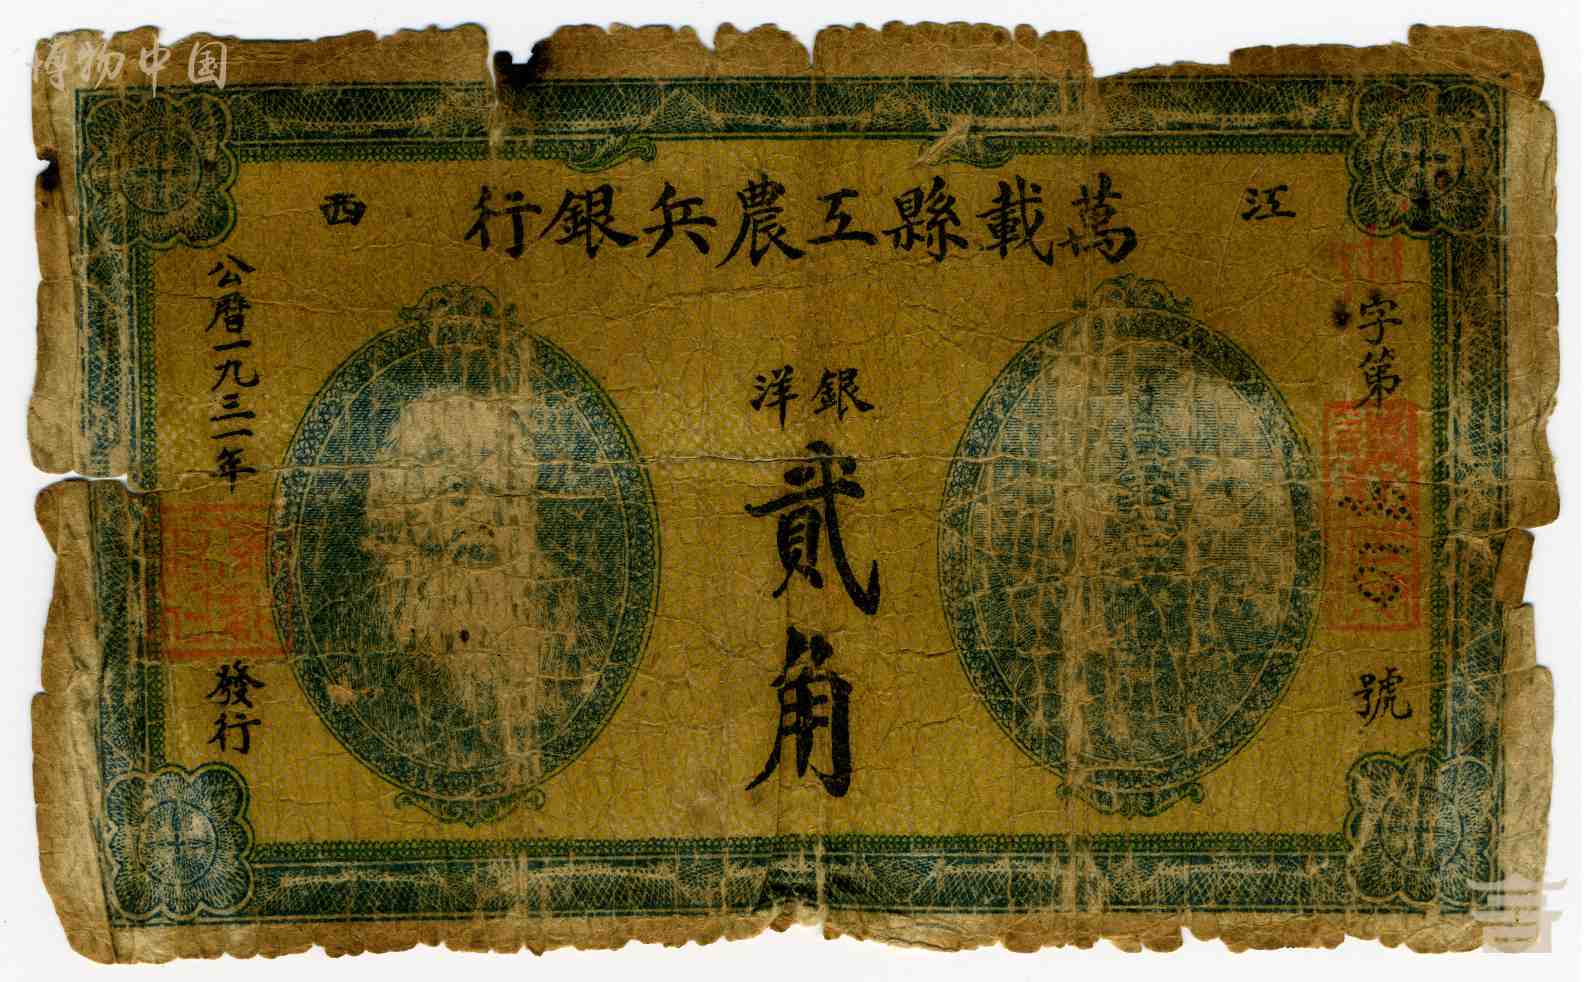 博物中国
江西
萬載縣工農兵銀行
字第
號
銀洋
貳角
公曆一九三一年
發行